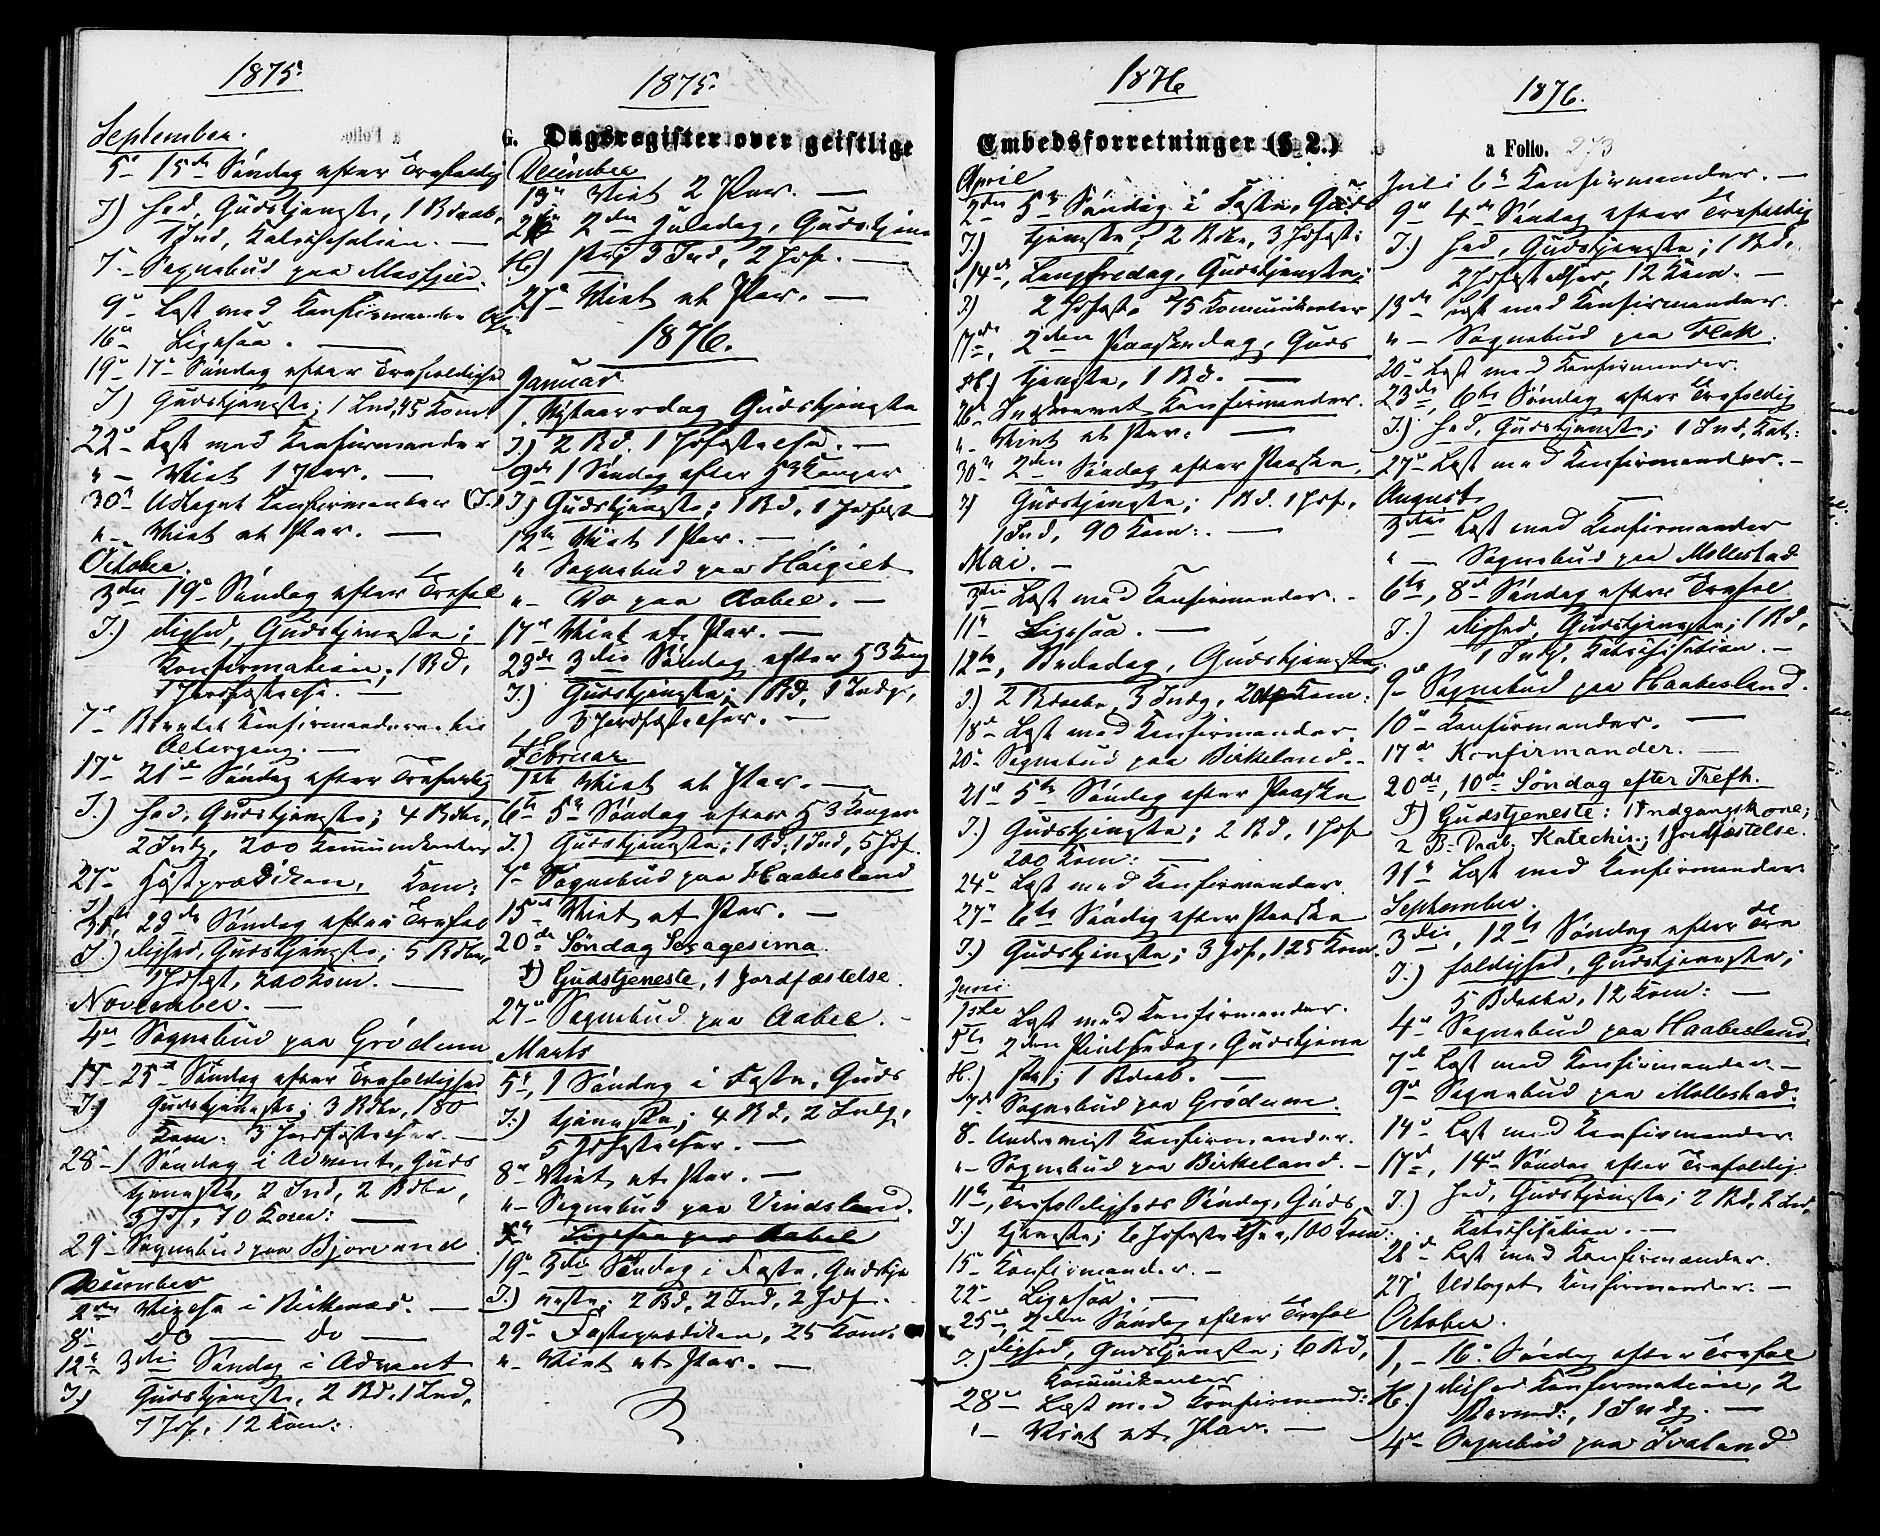 1875.
September.
5te 15de Søndag efter Trefoldig
I.) hed, Gudstjeneste, 1 Bdaab,
1 Ind, Katechesation. —
7. - Sognebud paa Mosfjeld.
9de Læst med Konfirmander
16de Ligesaa. —
19de 17de Søndag efter Trefoldighed
I) Gudstjeneste; 1 Ind, 45 Kom
22de Læst med Konfirmander
" - Viet 1 Par. —
30te Udtaget Konfirmander (I.)
" - Viet et Par. —
October.
3die 19de Søndag efter Trefol
I.) dighed, Gudstjeneste;
Konfirmation; 1 Bd,
1 Jordfæstelse. —
7de Konfirmanderne til
Altergang. —
17de 21de Søndag efter Trefoldig
I.) hed, Gudstjeneste; 4 Bdbe,
2 Indg, 200 Kommunikanter
27de Høstprædiken, Kom:
31te, 23de Søndag efter Trefol
I.) dighed, Gudstjeneste; 5 Bdbe,
1 Jdfæst, 200 Kom. —
November. —
4de Sognebud paa Grødum
25de Søndag efter Trefoldighed
I.) Gudstjeneste; 3 Bdbe, 180
Kom: 3 Jordfæstelser. —
28de 1 Søndag i Advent, Guds
tjeneste, 2 Ind, 2 Bdbe,
3 Jf, 70 Kom: —
29de Sognebud paa Bjorvand.
December
2den Vigsel i Birkenæs. —
8de Do — Do —
12te 3die Søndag i Advent
I.) Gudstjeneste, 2 Bd. 1 Ind,
1 Jdf, 12 Kom:
1875.
G. Dagsregister over geistlige
December
13de Viet 2 Par. —
26de 2den Juledag, Gudstjene
H.) ste; 3 Ind, 2 Jdf. —
27de Viet et Par. —
1876.
Januar
1. Nytaarsdag Gudstjeneste
I.) 2 Bd. 1 Jdfæstelse. —
9de 1 Søndag efter H3Konger
I) Gudstjeneste; 1 Bd, 1 Jordfæst
12te Viet 1 Par. —
" Sognebud paa Høigilt
" - Do paa Aabel. —
17de Viet et Par. —
23de 3die Søndag efter H3Kong
I.) Gudstjeneste; 1 Bd, 1 Indg,
3 Jordfæstelser. —
Februar
1ste Viet et Par. —
6te 5te Søndag efter H3Konger
I.) Gudstjeneste; 1 Bd, 1 Ind, 5 Jdf.
Sognebud paa Haabesland
15de Viet et Par. —
20de Søndag Sexagesima.
I) Gudstjeneste, 1 Jordfæstelse.
27de Sognebud paa Aabel. -
Marts
5te, 1 Søndag i Faste, Guds
I.) tjeneste; 4 Bd, 2 Indg,
5 Jdfæstelser. —
8de Viet et Par. —
" - Sognebud paa Vindsland.
Ligesaa paa Aabel
19de 3die Søndag i Faste, Gudstje
I.) neste; 2 Bd, 2 Ind, 2 Jdf. —
29de Fasteprædiken, 25 Kom:
" - Viet et Par. —
1876
Embedsforretninger (§ 2.)
April
2den 5te Søndag i Faste, Guds
I.) tjeneste; 2 Bdbe, 3 Jdfæst:
14de, Langfredag, Gudstjeneste;
I) 2 Jdfæst. 75 Kommunikanter
17de, 2den Paaskedag, Guds
H.) tjeneste, 1 Bd. —
26de Indskrevet Konfirmander.
" - Viet et Par. —
30te 2den Søndag efter Paaske,
I) Gudstjeneste; 1 Bd. 1 Jdf,
1 Ind, 90 Kom: —
Mai. -
3die Læst med Konfirmander. -
11te Ligesaa. —
12te, Bededag, Gudstjeneste,
I.) 2 Bdaabe, 3 Indg, Kom:
18de Læst med Konfirmander.
20de Sognebud paa Birkeland. -
21de 5te Søndag efter Paaske
I.) Gudstjeneste; 2 Bd, 1 Jdf
200 Kom: —
24de Læst med Konfirmander.
27de 6te Søndag efter Paaske
I.) Gudstjeneste; 3 Jdf, 125 Kom.
Juni.
1ste Læst med Konfirmander.
5te 2den Pintsedag, Gudstjene
H.) ste; 1 Bdaab. —
7de Sognebud paa Grødum.
8. Undervist Konfirmander.
" - Sognebud paa Birkeland. -
11te, Trefoldigheds Søndag, Guds
I.) tjeneste; 6 Jdfæstelser, 100 Kom:
15de Konfirmander. -
22de Ligesaa. —
25de, 2den Søndag efter Trefol
I.) dighed, Gudstjeneste; 6 Bd,
Kommunikanter
28de Læst med Konfirmand:
" - Viet et Par. —
1876.
a Folio. 273
Juli 6te Konfirmander. -
9de 4de Søndag efter Trefoldig
I.) hed, Gudstjeneste; 1 Bd,
2 Jdfæstelser, 12 Kom. —
13de Læst med Konfirmander.
" - Sognebud paa Flak.
20de Læst med Konfirmander.
23de, 6te Søndag efter Trefoldig
I.) hed, Gudstjeneste; 1 Ind, Kat:
27de Læst med Konfirmander. -
August —
3die Læst med Konfirmander
" - Sognebud paa Mollestad
6te, 8de Søndag efter Trefol
I.) dighed, Gudstjeneste; 1 Bd,
1 Indg, Katechisation. -
9de Sognebud paa Haabesland.
10de Konfirmander. —
17de Konfirmander. —
20de, 10de Søndag efter Trefh.
I) Gudstjeneste: 1 Indgangskone;
2 B. Daab; Katechis.; 1 Jordfæstelse.
31te Læst med Konfirmander.
September.
3die, 12te Søndag efter Tre
I.) foldighed, Gudstjeneste;
5 Bdaabe, 12 Kom: —
4de Sognebud paa Haabesland,
7de Læst med Konfirmander. -
9de Sognebud paa Mollestad.
14de Læst med Konfirmander
17de, 14de Søndag efter Trefoldig
I.) hed, Gudstjeneste; 2 Bd, 2 Ind,
Katechisation. —
Læst med Konfirmander.
27de Udtaget Konfirmander. -
October.
1, - 16de Søndag efter Trefol
H.) dighed Konfirmation, 2
1 Indg. —
4de Sognebud paa Ivaland